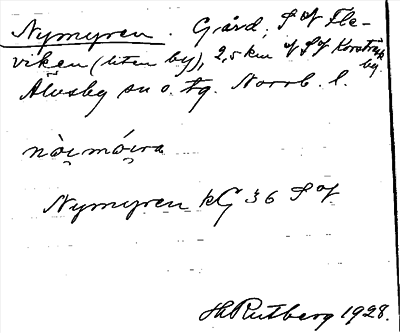 Nymyren. Gård, S of Fle-
viken (liten by), 2,5 km v of Korsträsk
by.
Älvsby sn o. tg. Norrb. l.
nòi̯mói̯ra
Nymyren kG 36 S of
Hh Rutberg 1928.